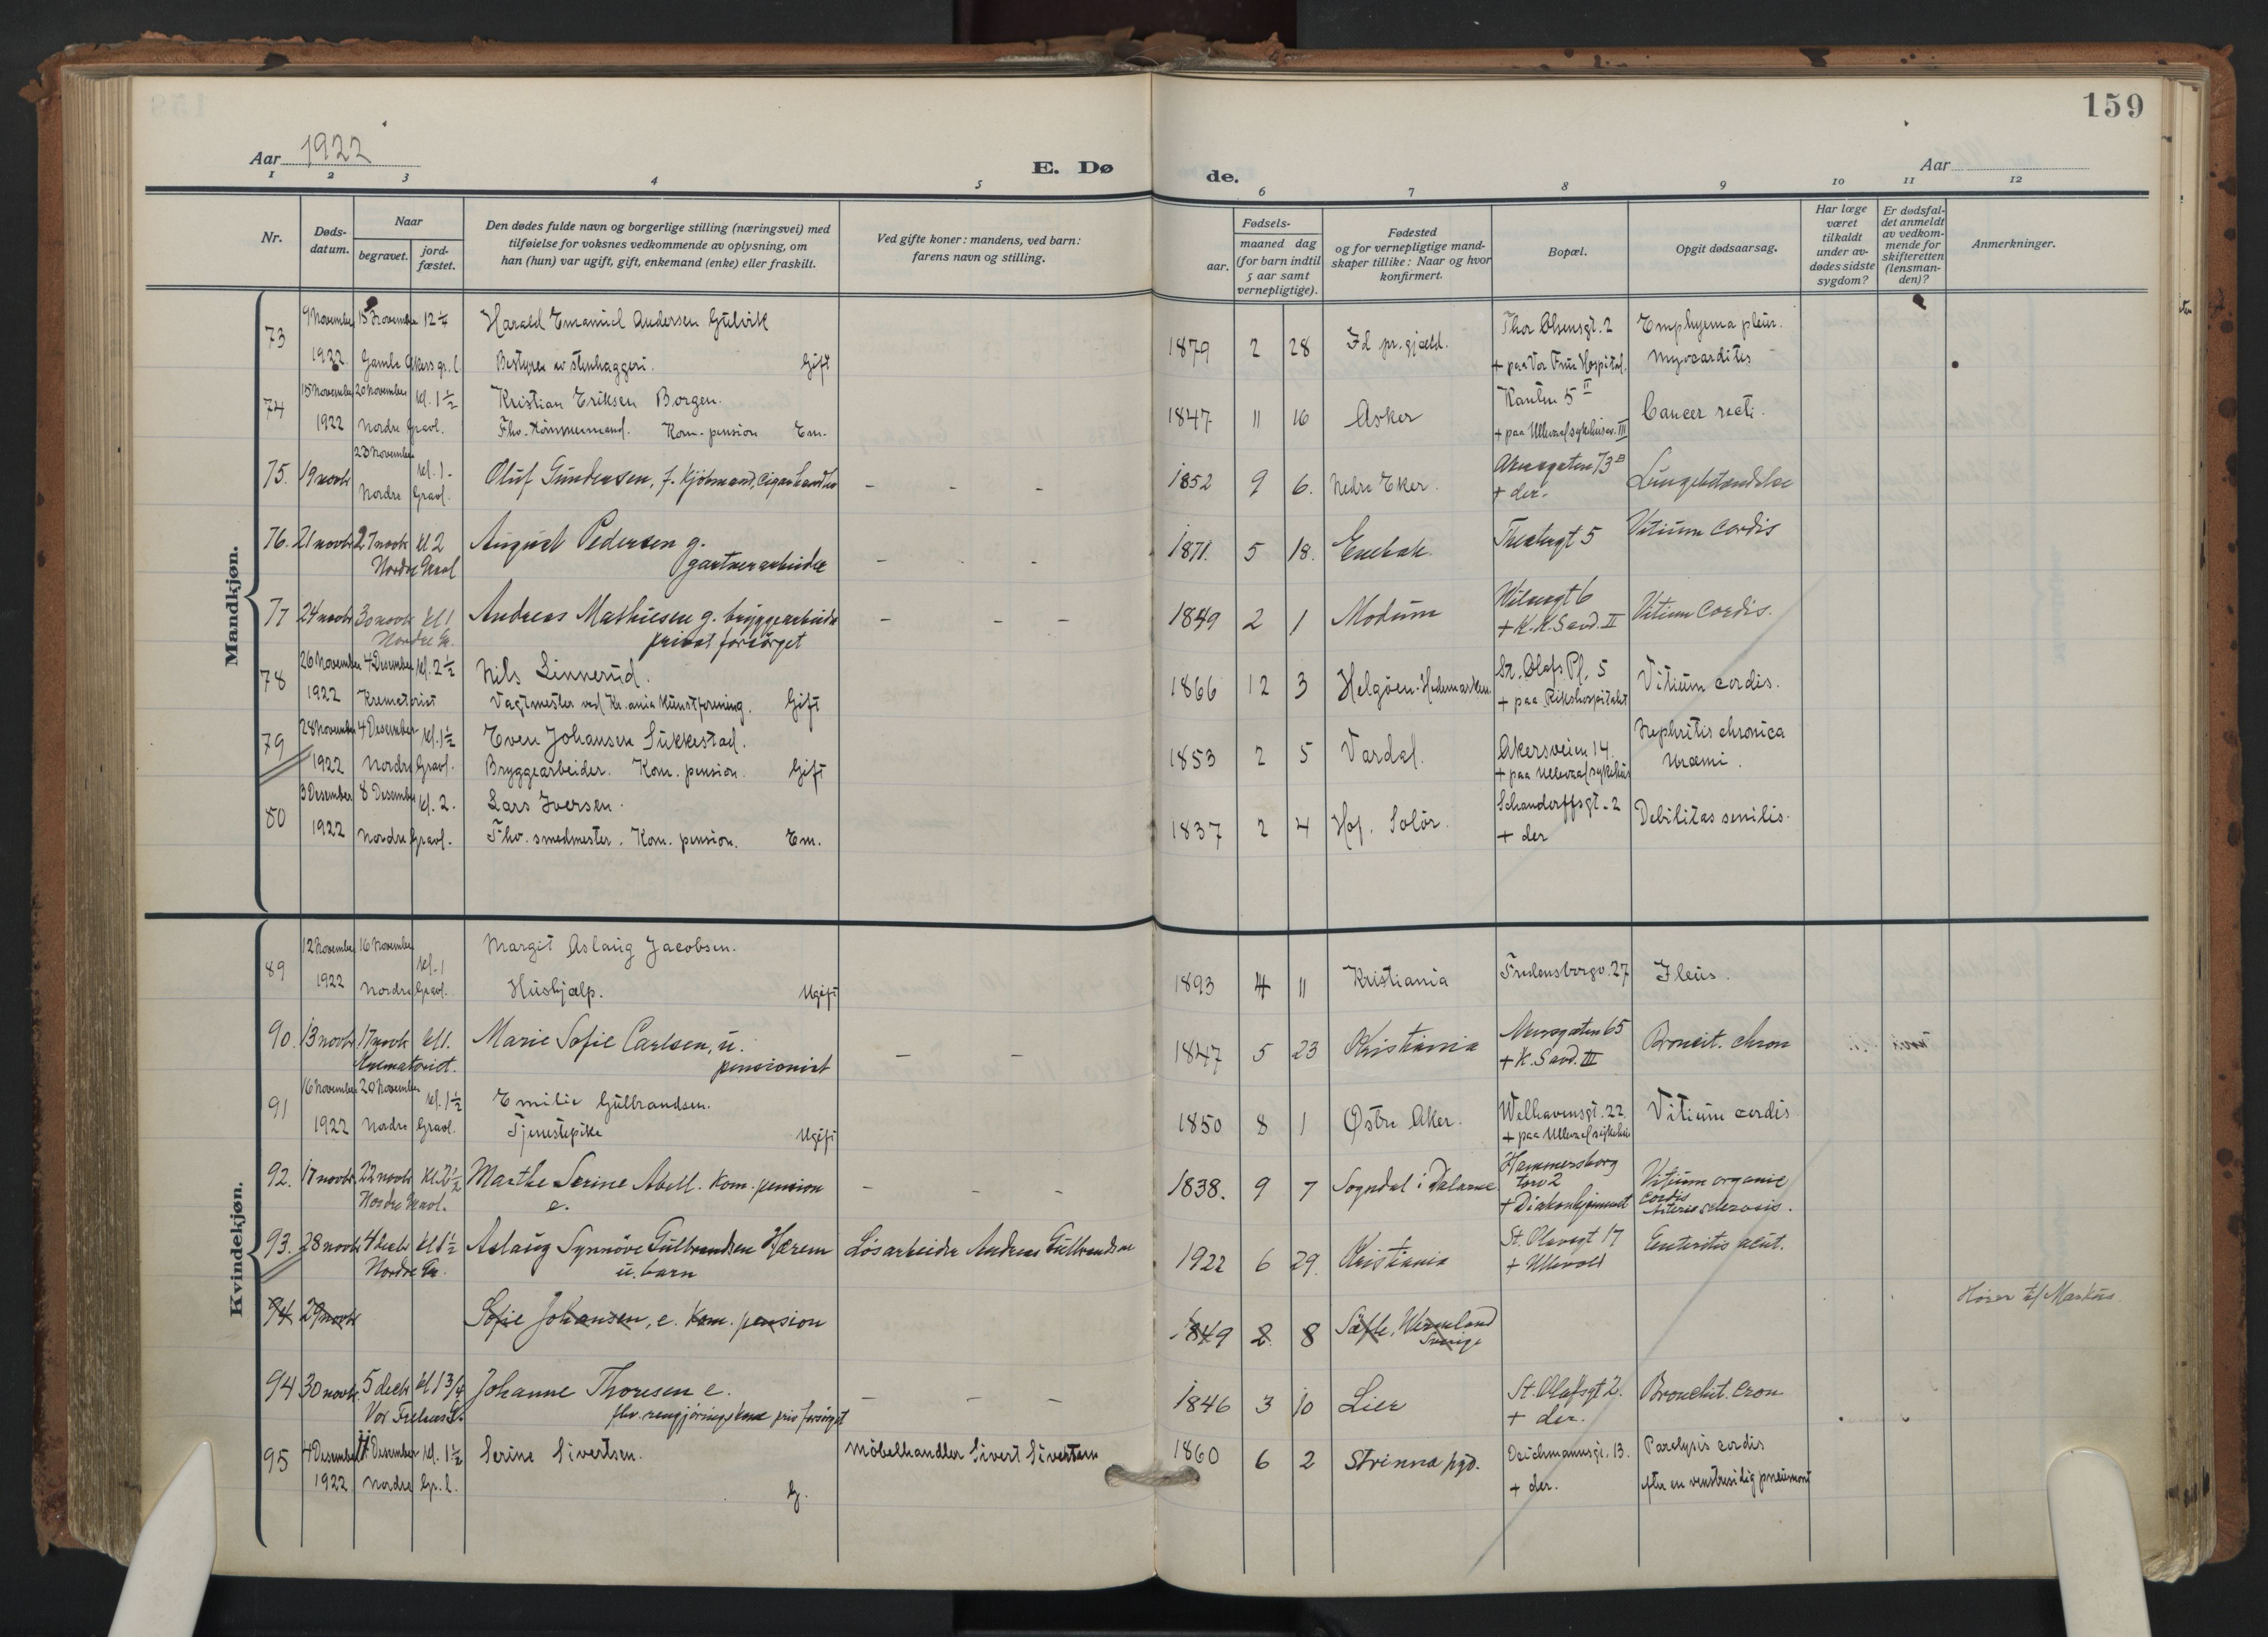 159
Aar 1922
E. Dø
de.
Aar
1 2 3 4 5 6 7 8 9 10 11 12
Nr.
Døds-
datum.
Naar
begravet.
jord-
fæstet.
Den dødes fulde navn og borgerlige stilling (næringsvei) med
tilføielse for voksnes vedkommende av oplysning, om
han (hun) var ugift, gift, enkemand (enke) eller fraskilt.
Ved gifte koner: mandens, ved barn:
farens navn og stilling.
Fødsels-
aar.
maaned dag
(for barn indtil
5 aar samt
vernepligtige).
Fødested
og for vernepligtige mand-
skaper tillike: Naar og hvor
konfirmert.
Bopæl.
Opgit dødsaarsag.
Har læge
været
tilkaldt
under av-
dødes sidste
sygdom?
Er dødsfal-
det anmeldt
av vedkom-
mende for
skifteretten
(lensman-
den)?
Anmerkninger.
Mandkjøn.
73 9 November 15 November 12 1/4 Harald Emanuel Andersen Gulvik
1922 Gamle Akers gr. l. Bestyrer av stenhuggeri. Gift
1879 2 28 Id pr.gjæld. Thor Olsensgt. 2 Emphyema pleur.
+ paa Vor Frue Hospital. Myocarditis
74 15 November 20 November kl. 1 1/2 Kristian Eriksen Borgen.
1922 Nordre Gravl. Fhv. Tømmermand. Kom. pension Em.
1847 11 16 Asker 5 II Cancer recti.
+ paa Ullevaal sykehus av. III
75. 19 novbr 23 November kl. 1- Oluf Gundersen, f. Kjöbmand, Cigarhandler - - -
Nordre Gravl.
1852 9 6. Nedre Eker. Akersgaten 73 B Lungebetændelse
+ der.
76. 21 novbr 27 novbr kl 2 August Pedersen g.
Nordre Gravl gartnerarbeider - - -
1871. 5 18. Enebak. Theatergt 5 Vitium Cordis
77 24 novbr 30 novbr kl 1 Andreas Mathiesen g. bryggearbeider - - -
Nordre Gr. privat forsörget
1849 2 1 Modum 6 Vitium Cordis.
+ K. K. S avd. II
78 26 November 4 Desember kl. 2 1/2 Nils Linnerud.
1922 Krematoriet Vagtmester ved Kr.ania Kunstforening. Gift
1866 12 3 Helgöen. Hedemarken. St. Olafs Pl. 5 Vitium cordis.
+ paa Rikshospitalet
79 28 November 4 Desember kl. 1 1/2 Even Johansen Sukkestad.
1922 Nordre Gravl. Bryggearbeider. Kom. pension. Gift
1853 2 5 Vardal. Akersveien 14. Nephritis chronica
+ paa Ullevaal sykehus Uræmi.
80 3 Desember 8 Desember kl. 2. Lars Iversen.
1922 Nordre Gravl. Fhv. smedmester. Kom. pension. Em.
1837 2 4 Hof. Solör. Schandorffsgt. 2 Debilitas senilis.
+ der
Kvindekjøn.
89 12 November 16 November kl. 1 Margit Aslaug Jacobsen.
1922 Nordre Gravl. Hushjælp. Ugift
1893 4 11 Kristiania Fredensborgv. 27 Ileus.
90. 13 novbr 17 novbr kl 1. Marie Sofie Carlsen, u. - -
Krematoriet. pensionist
1847 5 23 Kristiania Akersgaten 65 Broncit. chron
+ K. S avd. III
91 16 November 20 November kl. 1 1/2 Emilie Gulbrandsen.
1922 Nordre Gravl. Tjenestepike Ugift
1850 8 1 Østre Aker. Welhavensgt. 22. Vitium cordis
+ paa Ullevaal sykehus
92. 17 novbr. 22 novbr kl. 2 1/2 Marthe Serine Abell. Kom. pension - - -
Nordre Gravl. e.
1838. 9 7 Sogndal i Dalarne Hammersborg
torv 2 Vitium organic
cordis
+ Diakonhjemmet Arteriosclerosis.
93. 28 novbr 4 decbr kl 1 1/2 Aslaug Synnöve Gulbrandsen Hærem Lösarbeider Andreas Gulbrandsen
Nordre Gr. u. barn
1922 6 29. Kristiania St. Olavsgt 17 Enteritis acut.
+ Ullevold
94 29 novbr Sofie Johansen, e. Kom. pension
1849 2 8 Säfle, Wermland
Sverige
Hörer til Markus
94 30 novbr. 5 decbr kl 1 3/4 Johanne Thoresen e. - - -
Vor Frelsers Gr. fhv. rengjöringskone priv forsörget
1846 3 10 Lier St. Olafsgt 2. Bronchit. Cron
+ der.
95 4 Desember 11 Desember kl. 1 1/2 Serine Sivertsen. Möbelhandler Sivert Sivertsen
1922 Nordre Gr. l. G.
1860 6 2 Strinna pgd. Deichmannsgt. 13. Paralysis cordis
+ der. efter en venstresidig pneumoni